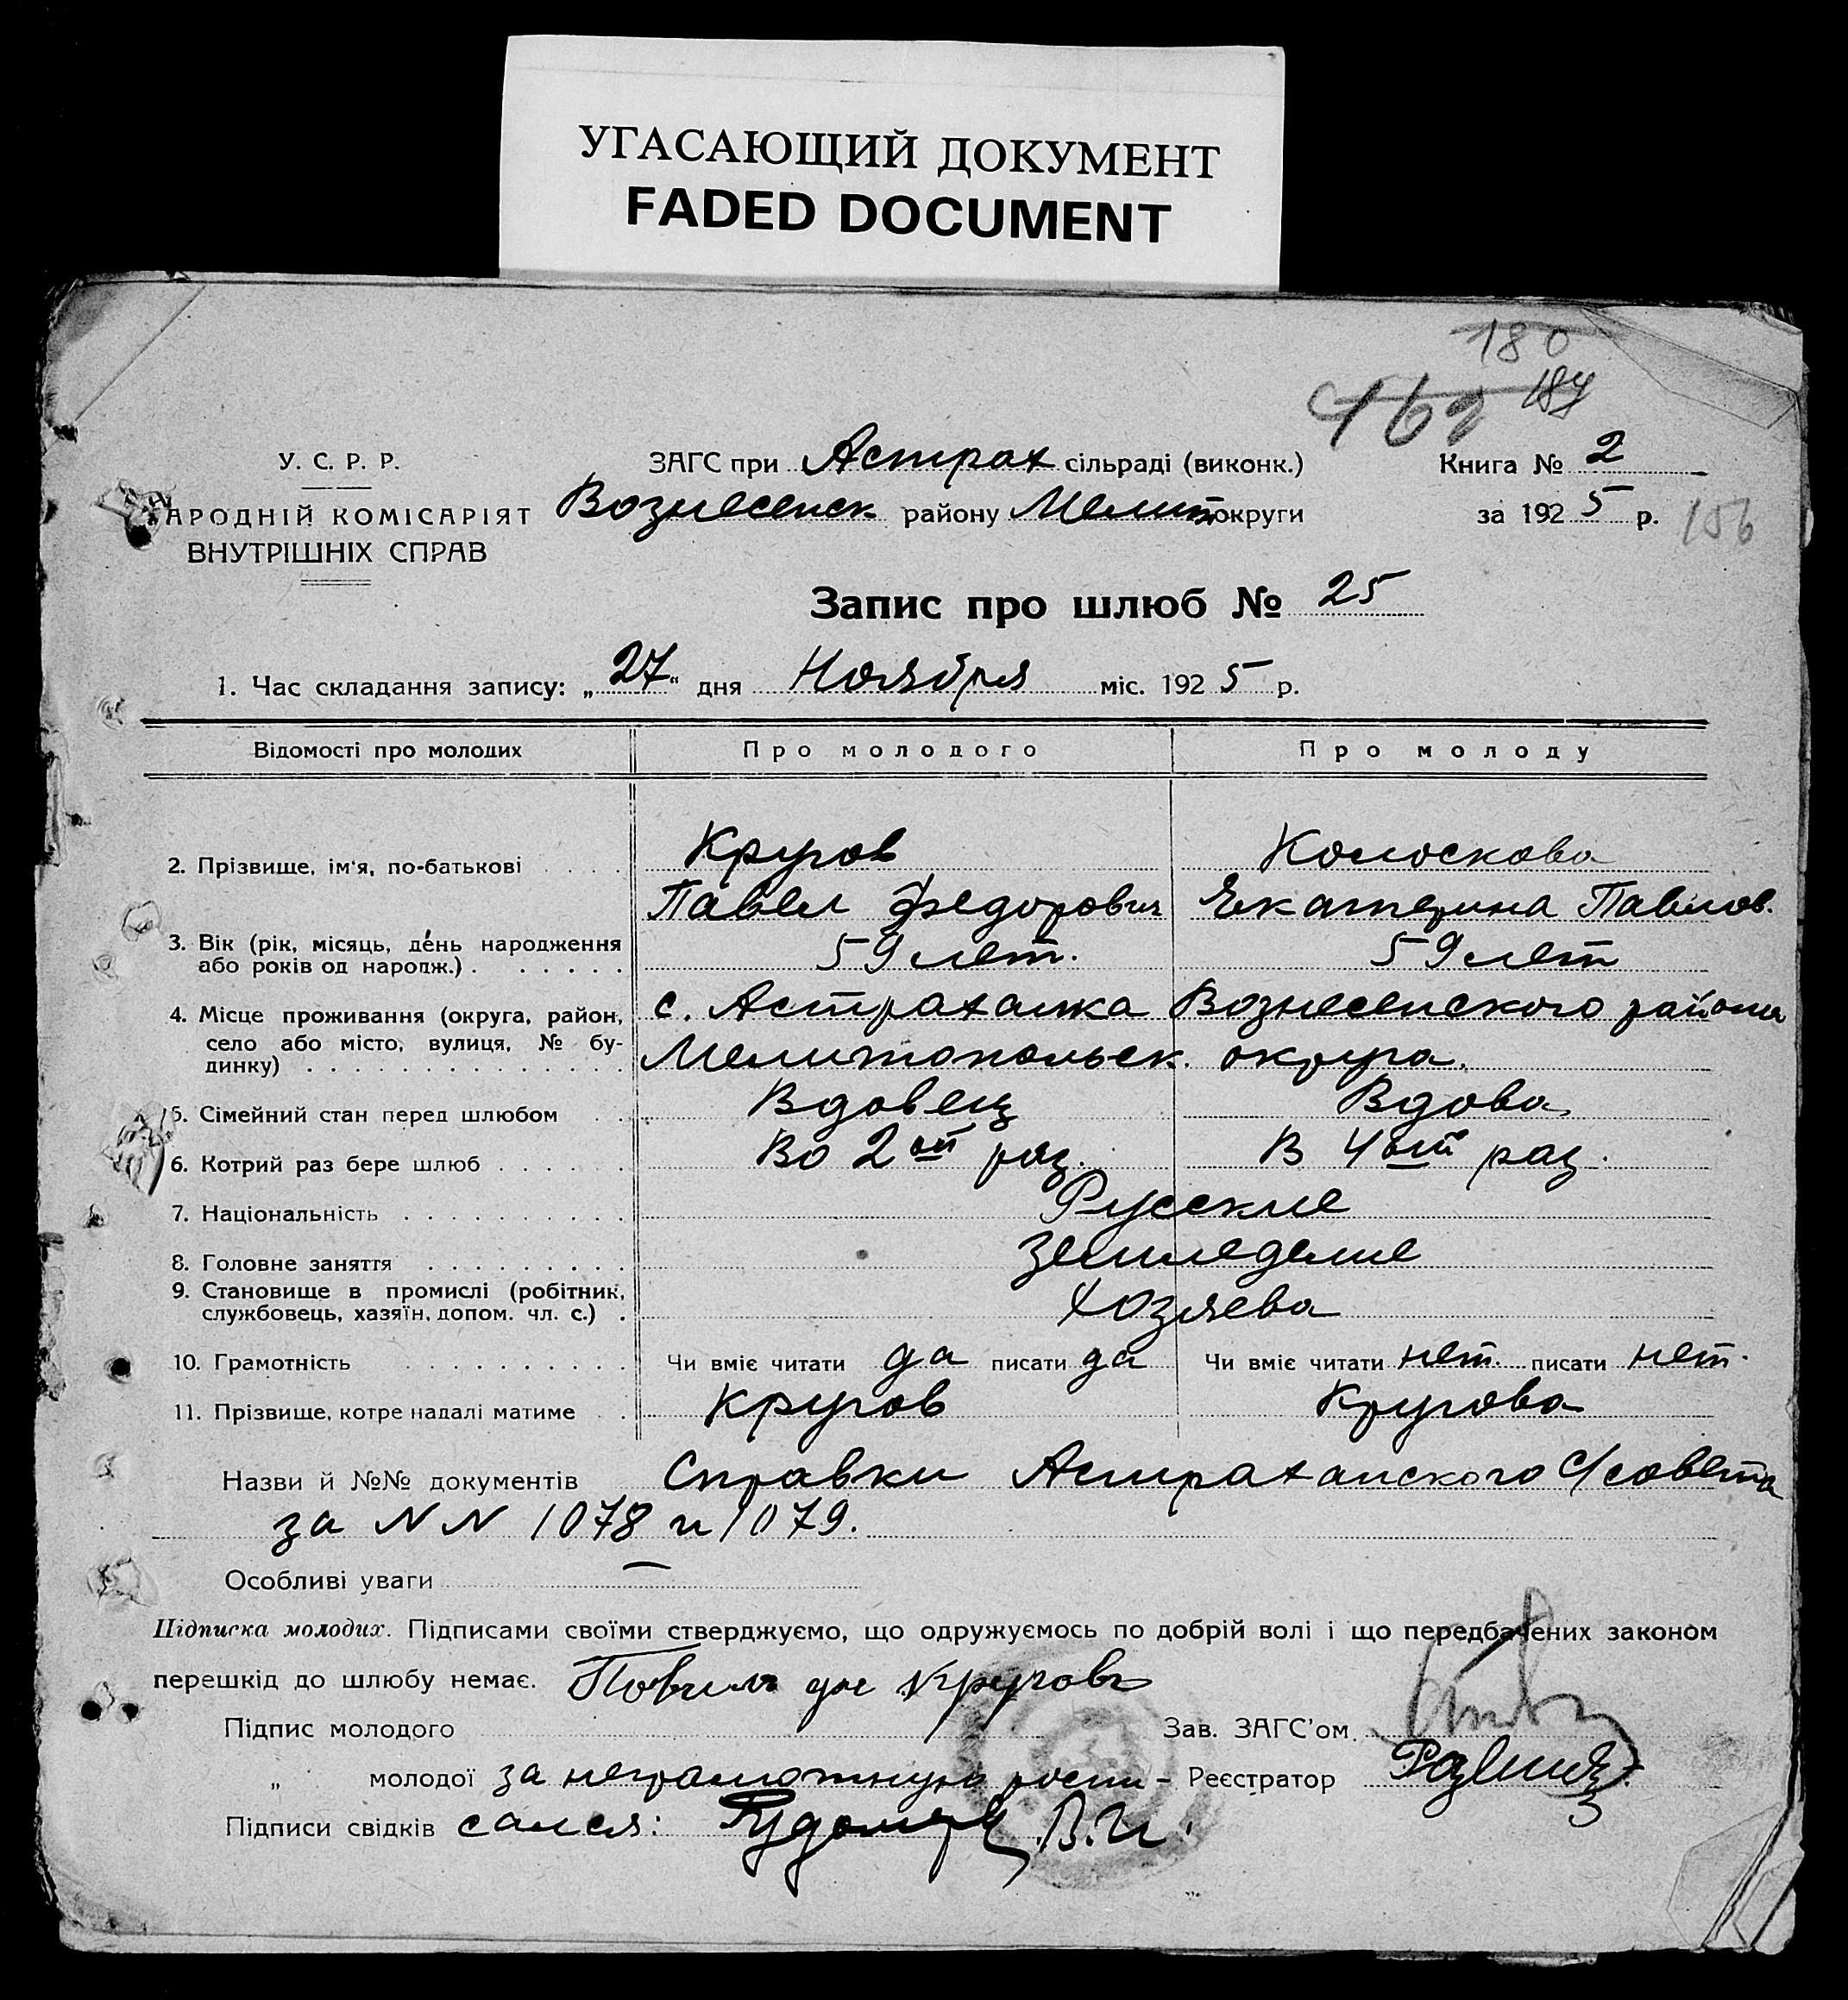 УГАСАЮЩИЙ ДОКУМЕНТ
FADED DOCUMENT
180
162 184
У. С. Р. Р.
АРОДНІЙ КОМІСАРІЯТ
ВНУТРІШНІХ СПРАВ
ЗАГС при Астрах сільраді (виконк.)
Вознесенск району Мелит округи
Книга № 2
за 1925 р. 156
Запис про шлюб № 25
1. Час складання запису: „27“ дня Ноября міс. 1925 р.
Відомості про молодих Про молодого Про молоду
2. Прізвище, ім'я, по-батькові . . . . Кругов Колоскова
Павел Федорович Екатерина Павлов.
3. Вік (рік, місяць, день народження або років од народж.) . . . . . . 59 лет. 59 лет
4. Місце проживання (округа, район, село або місто, вулиця, № будинку) . . . с. Астраханка Вознесенского района
Мелитопольск. округа.
5. Сімейний стан перед шлюбом . . Вдовец Вдова
6. Котрий раз бере шлюб . . . . . . Во 2ой раз. В 4ый раз.
7. Національність . . . . . . . . . . Русские
8. Головне заняття . . . . . . . . . Земледелие
9. Становище в промислі (робітник, службовець, хазяїн, допом. чл. с.) . Хозяева
10. Грамотність . . . . . . . . . . Чи вміє читати да писати да Чи вміє читати нет. писати нет.
11. Прізвище, котре надалі матиме . . Кругов Кругова
Назви й №№ документів Справки Астраханского С/совета
за NN 1078 и 1079.
Особливі уваги —
Підписка молодих. Підписами своїми стверджуємо, що одружуємось по добрій волі і що передбачених законом
перешкід до шлюбу немає.
Кругов
Підпис молодого Зав. ЗАГС'ом
„ молодої за неграмотную роспи- Реєстратор
Підписи свідків сался: В.И.